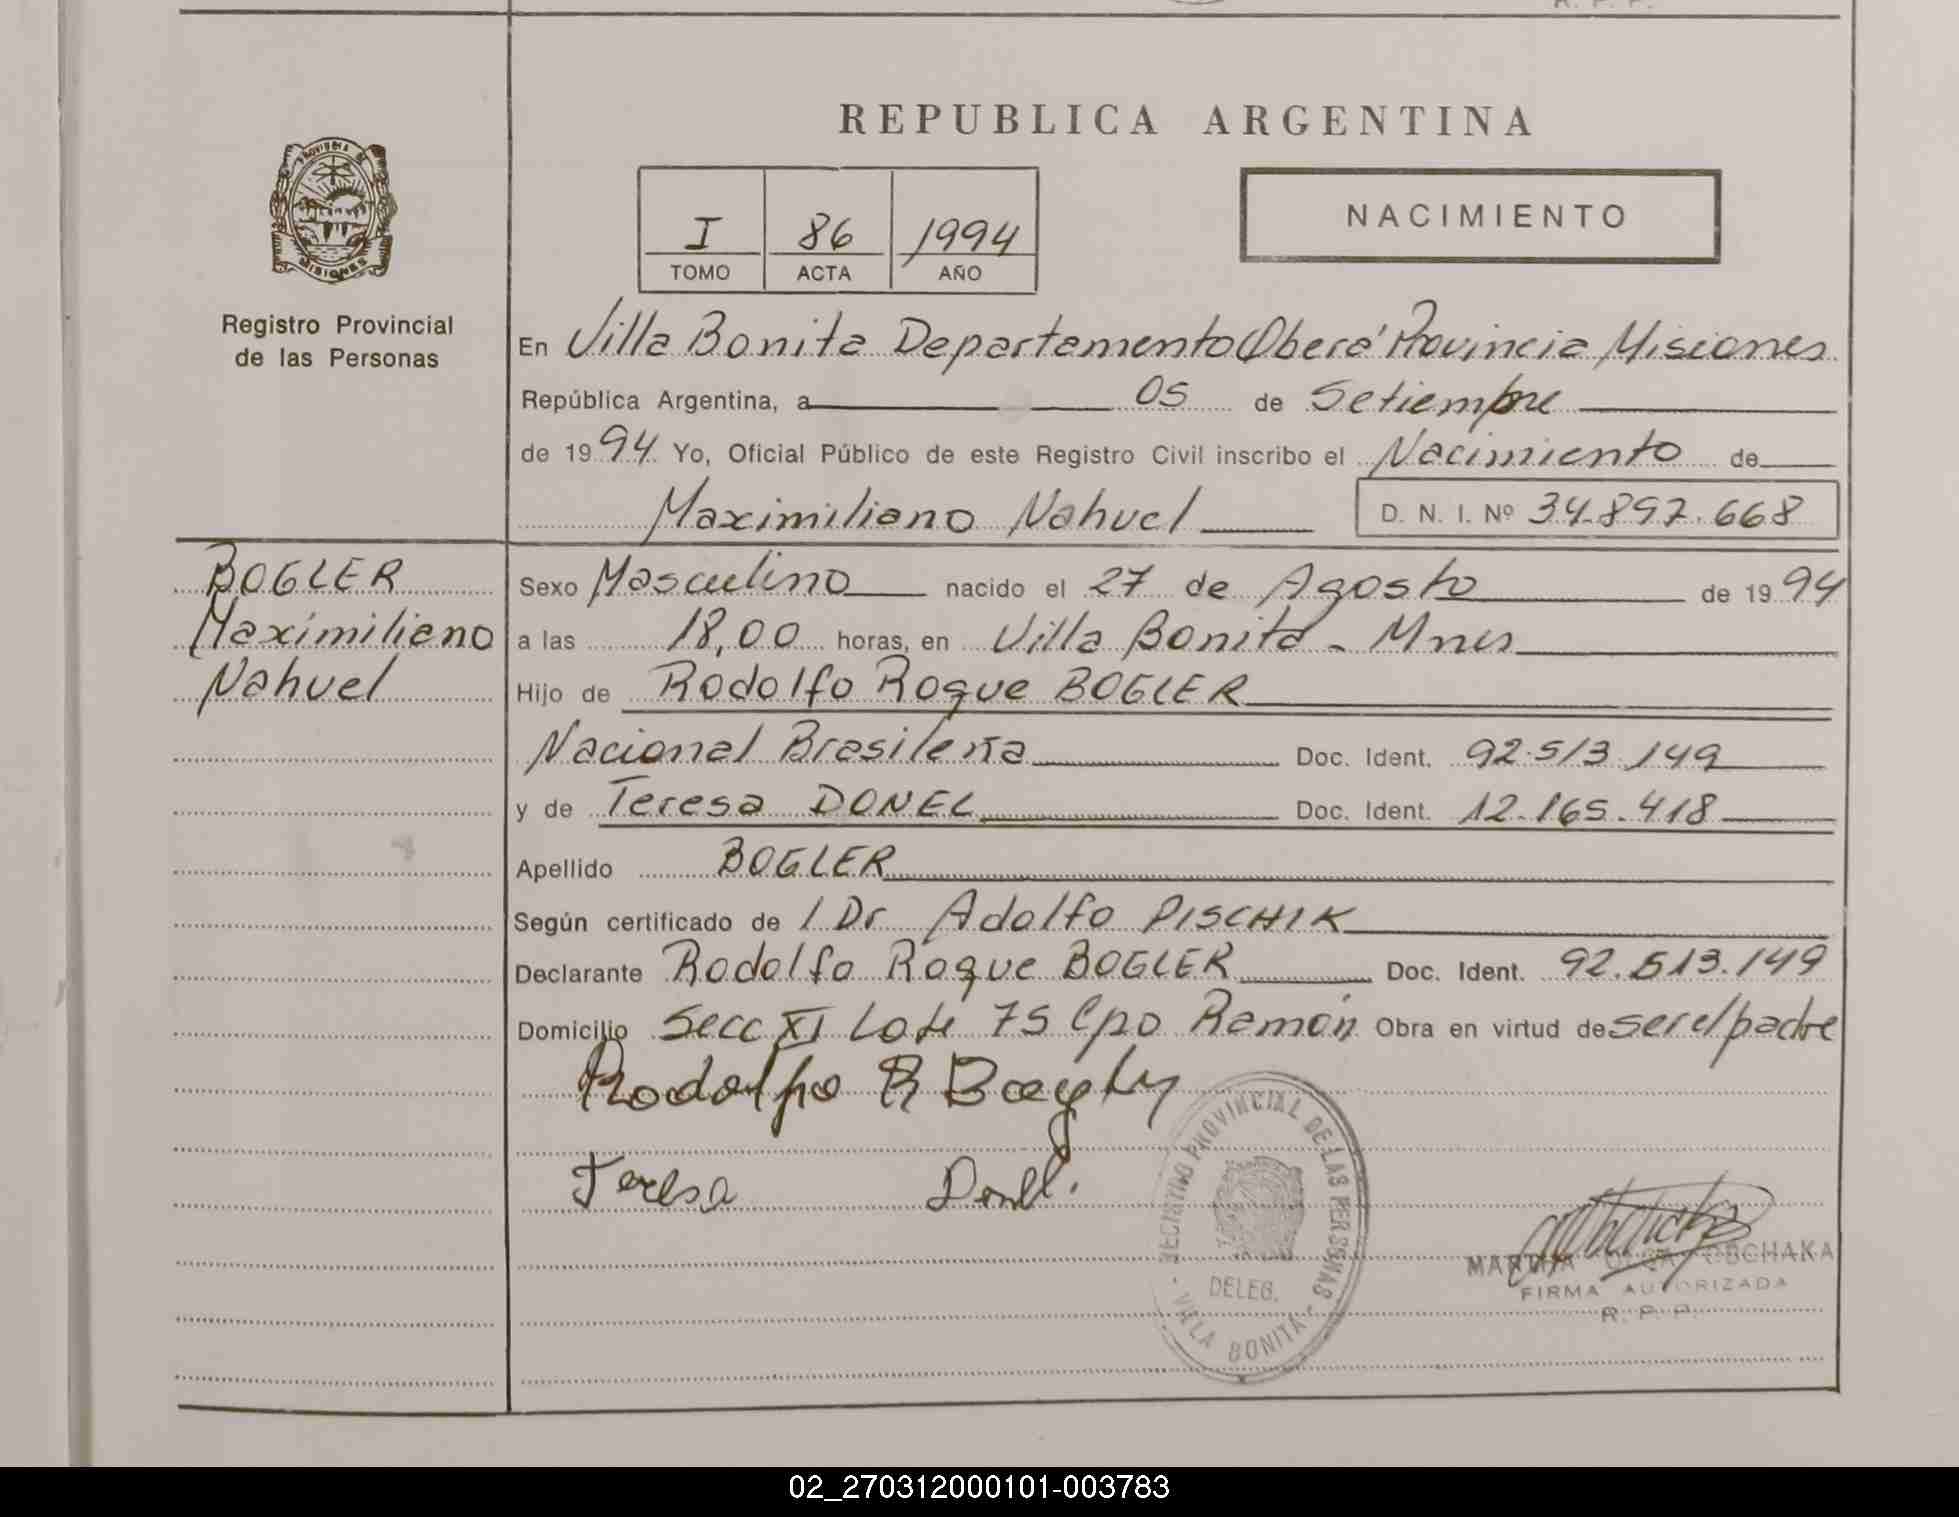 R. P. P.
REPUBLICA ARGENTINA
PROVINCIA DE
MISIONES
Registro Provincial
de las Personas
I 86 1994
TOMO ACTA AÑO
NACIMIENTO
En Villa Bonita Departamento Oberá Provincia Misiones
República Argentina, a 05 de Setiembre
de 1994 Yo, Oficial Público de este Registro Civil inscribo el Nacimiento de
Maximiliano Nahuel D. N. I. Nº 34.897.668
BOGLER
Maximiliano
Nahuel
Sexo Masculino nacido el 27 de Agosto de 1994
a las 18,00 horas, en Villa Bonita - Mnes
Hijo de Rodolfo Roque BOGLER
Nacional Brasileña Doc. Ident. 92.513.149
y de Teresa DONEL Doc. Ident. 12.165.418
Apellido BOGLER
Según certificado de / Dr Adolfo PISCHIK
Declarante Rodolfo Roque BOGLER Doc. Ident. 92.513.149
Domicilio Secc XI Lote 75 Cpo Ramón Obra en virtud de ser el padre
Rodolfo R
Teresa Donel.
REGISTRO PROVINCIAL DE LAS PERSONAS
DELEG.
- VILLA BONITA -
MARTHA OLGA
FIRMA AUTORIZADA
R. P. P.
02_270312000101-003783